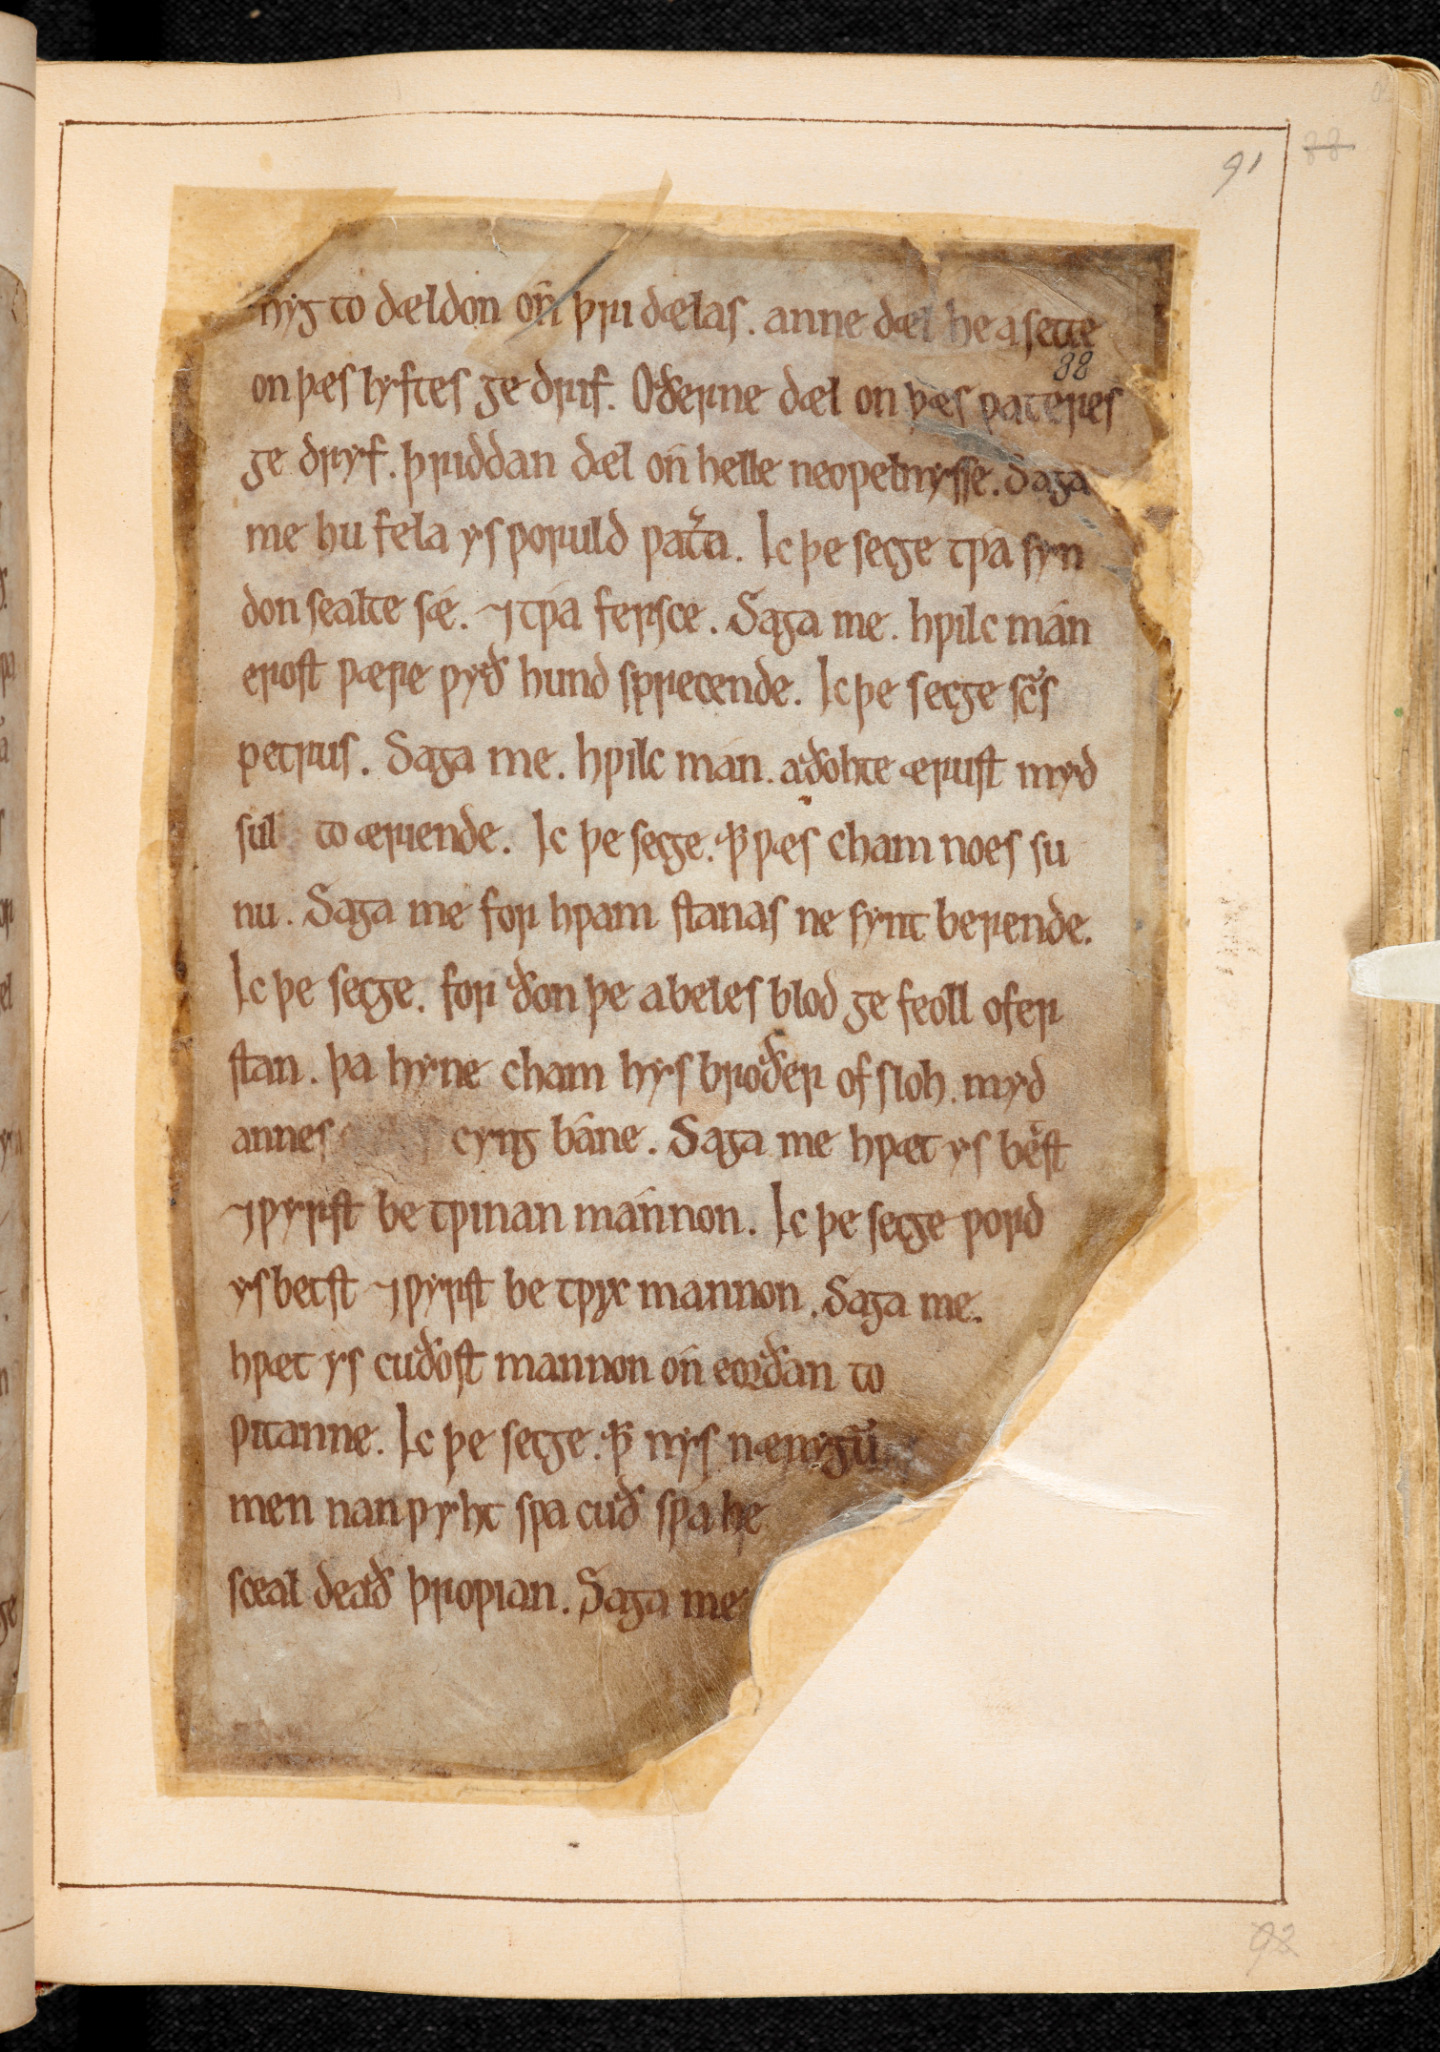 91
88
nyg to dældon oń þri dælas . anne dæl he asette
88
on þæs lyftes ge drif . Oðerne dæl on þæs ƿateres
ge dryf . þriddan dæl oń helle neoƿelnysse . Saga
me hu fela ys ƿoruld ƿat̄ra . Ic þe secge tƿa syn
don sealte sǽ . ⁊ tƿá fersce . Saga me . hƿilc mán
erost ƿære ƿyð hund sprecende . Ic þe secge sc̄s
petrus . Saga me . hƿilc man . aðohte ærust myd
sul to æriende . Ic þe secge . ꝥ ƿæs cham noes su
nu . Saga me for hƿam stanas ne synt berende .
Ic þe secge . for ðon þe abeles blod ge feoll ofer
stan . þa hyne cham hys broðer of sloh . myd
annes cyng báne . Saga me hƿæt ys betst
⁊ ƿyrst be tƿinan mannon . Ic þe secge ƿord
ys betst ⁊ ƿyrst be tƿyx mannon . Saga me .
hƿæt ys cuðost mannon oń eorðan to
ƿitanne . Ic þe secge . ꝥ nys nænygū
men nanƿyht sƿa cuð sƿa he
sceal deað þroƿian . Saga me
92